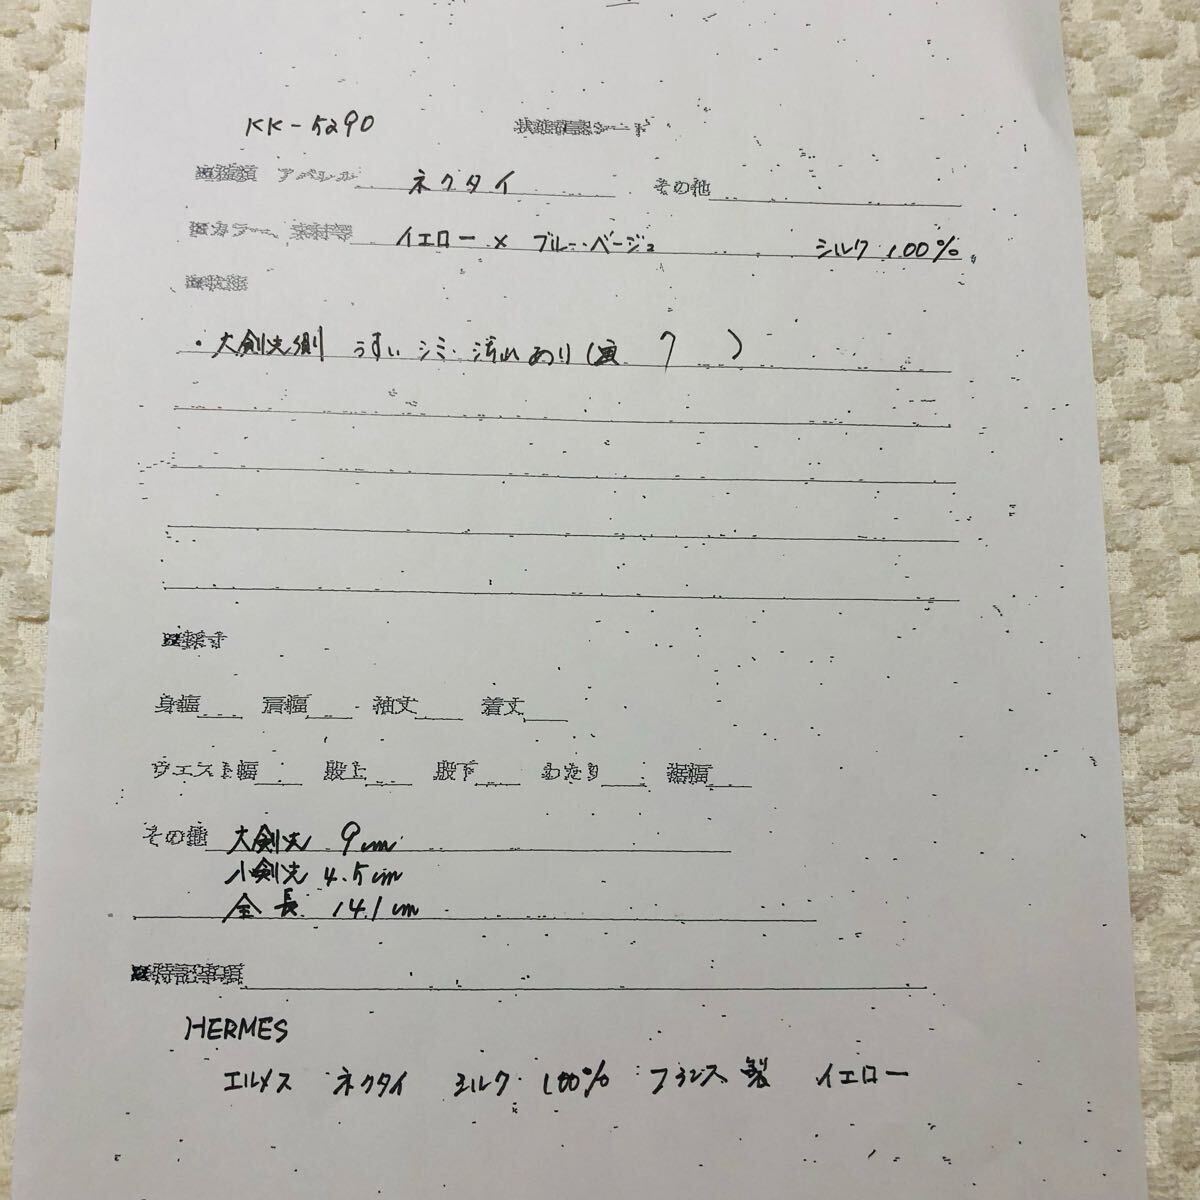 KK-5290 状態確認シート
■種類 アパレル ネクタイ その他
■カラー、素材等 イエロー×ブルー・ベージュ シルク100%
■状態
・大剣先側 うすいシミ・汚れあり( 7 )
■採寸
身幅 肩幅 袖丈 着丈
ウエスト幅 股上 股下 わたり 裾幅
その他 大剣先 9cm
小剣先 4.5cm
全長 141cm
■特記事項
HERMES
エルメス ネクタイ シルク 100% フランス製 イエロー